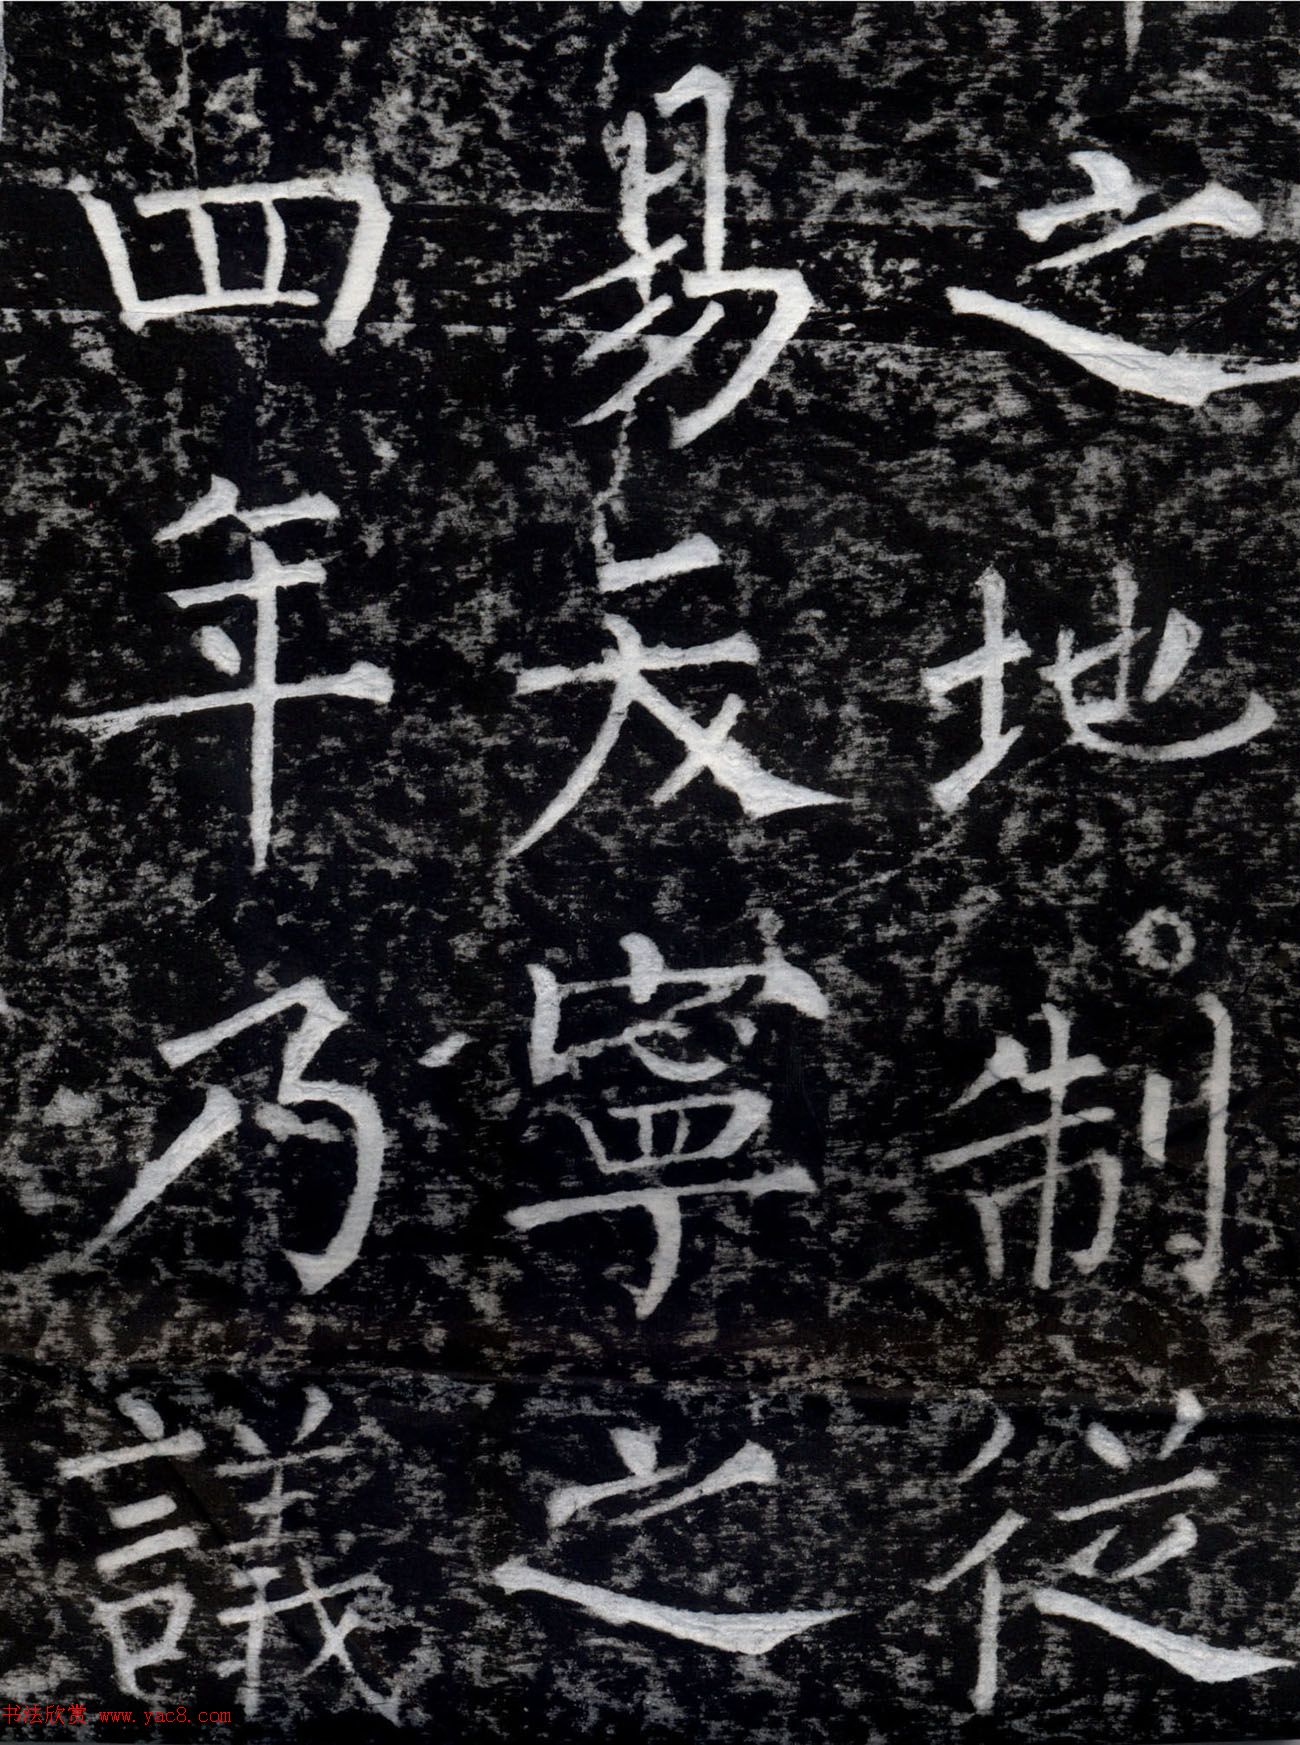 之地制從
易寧之
四年乃議
书法欣赏 www.yac8.com